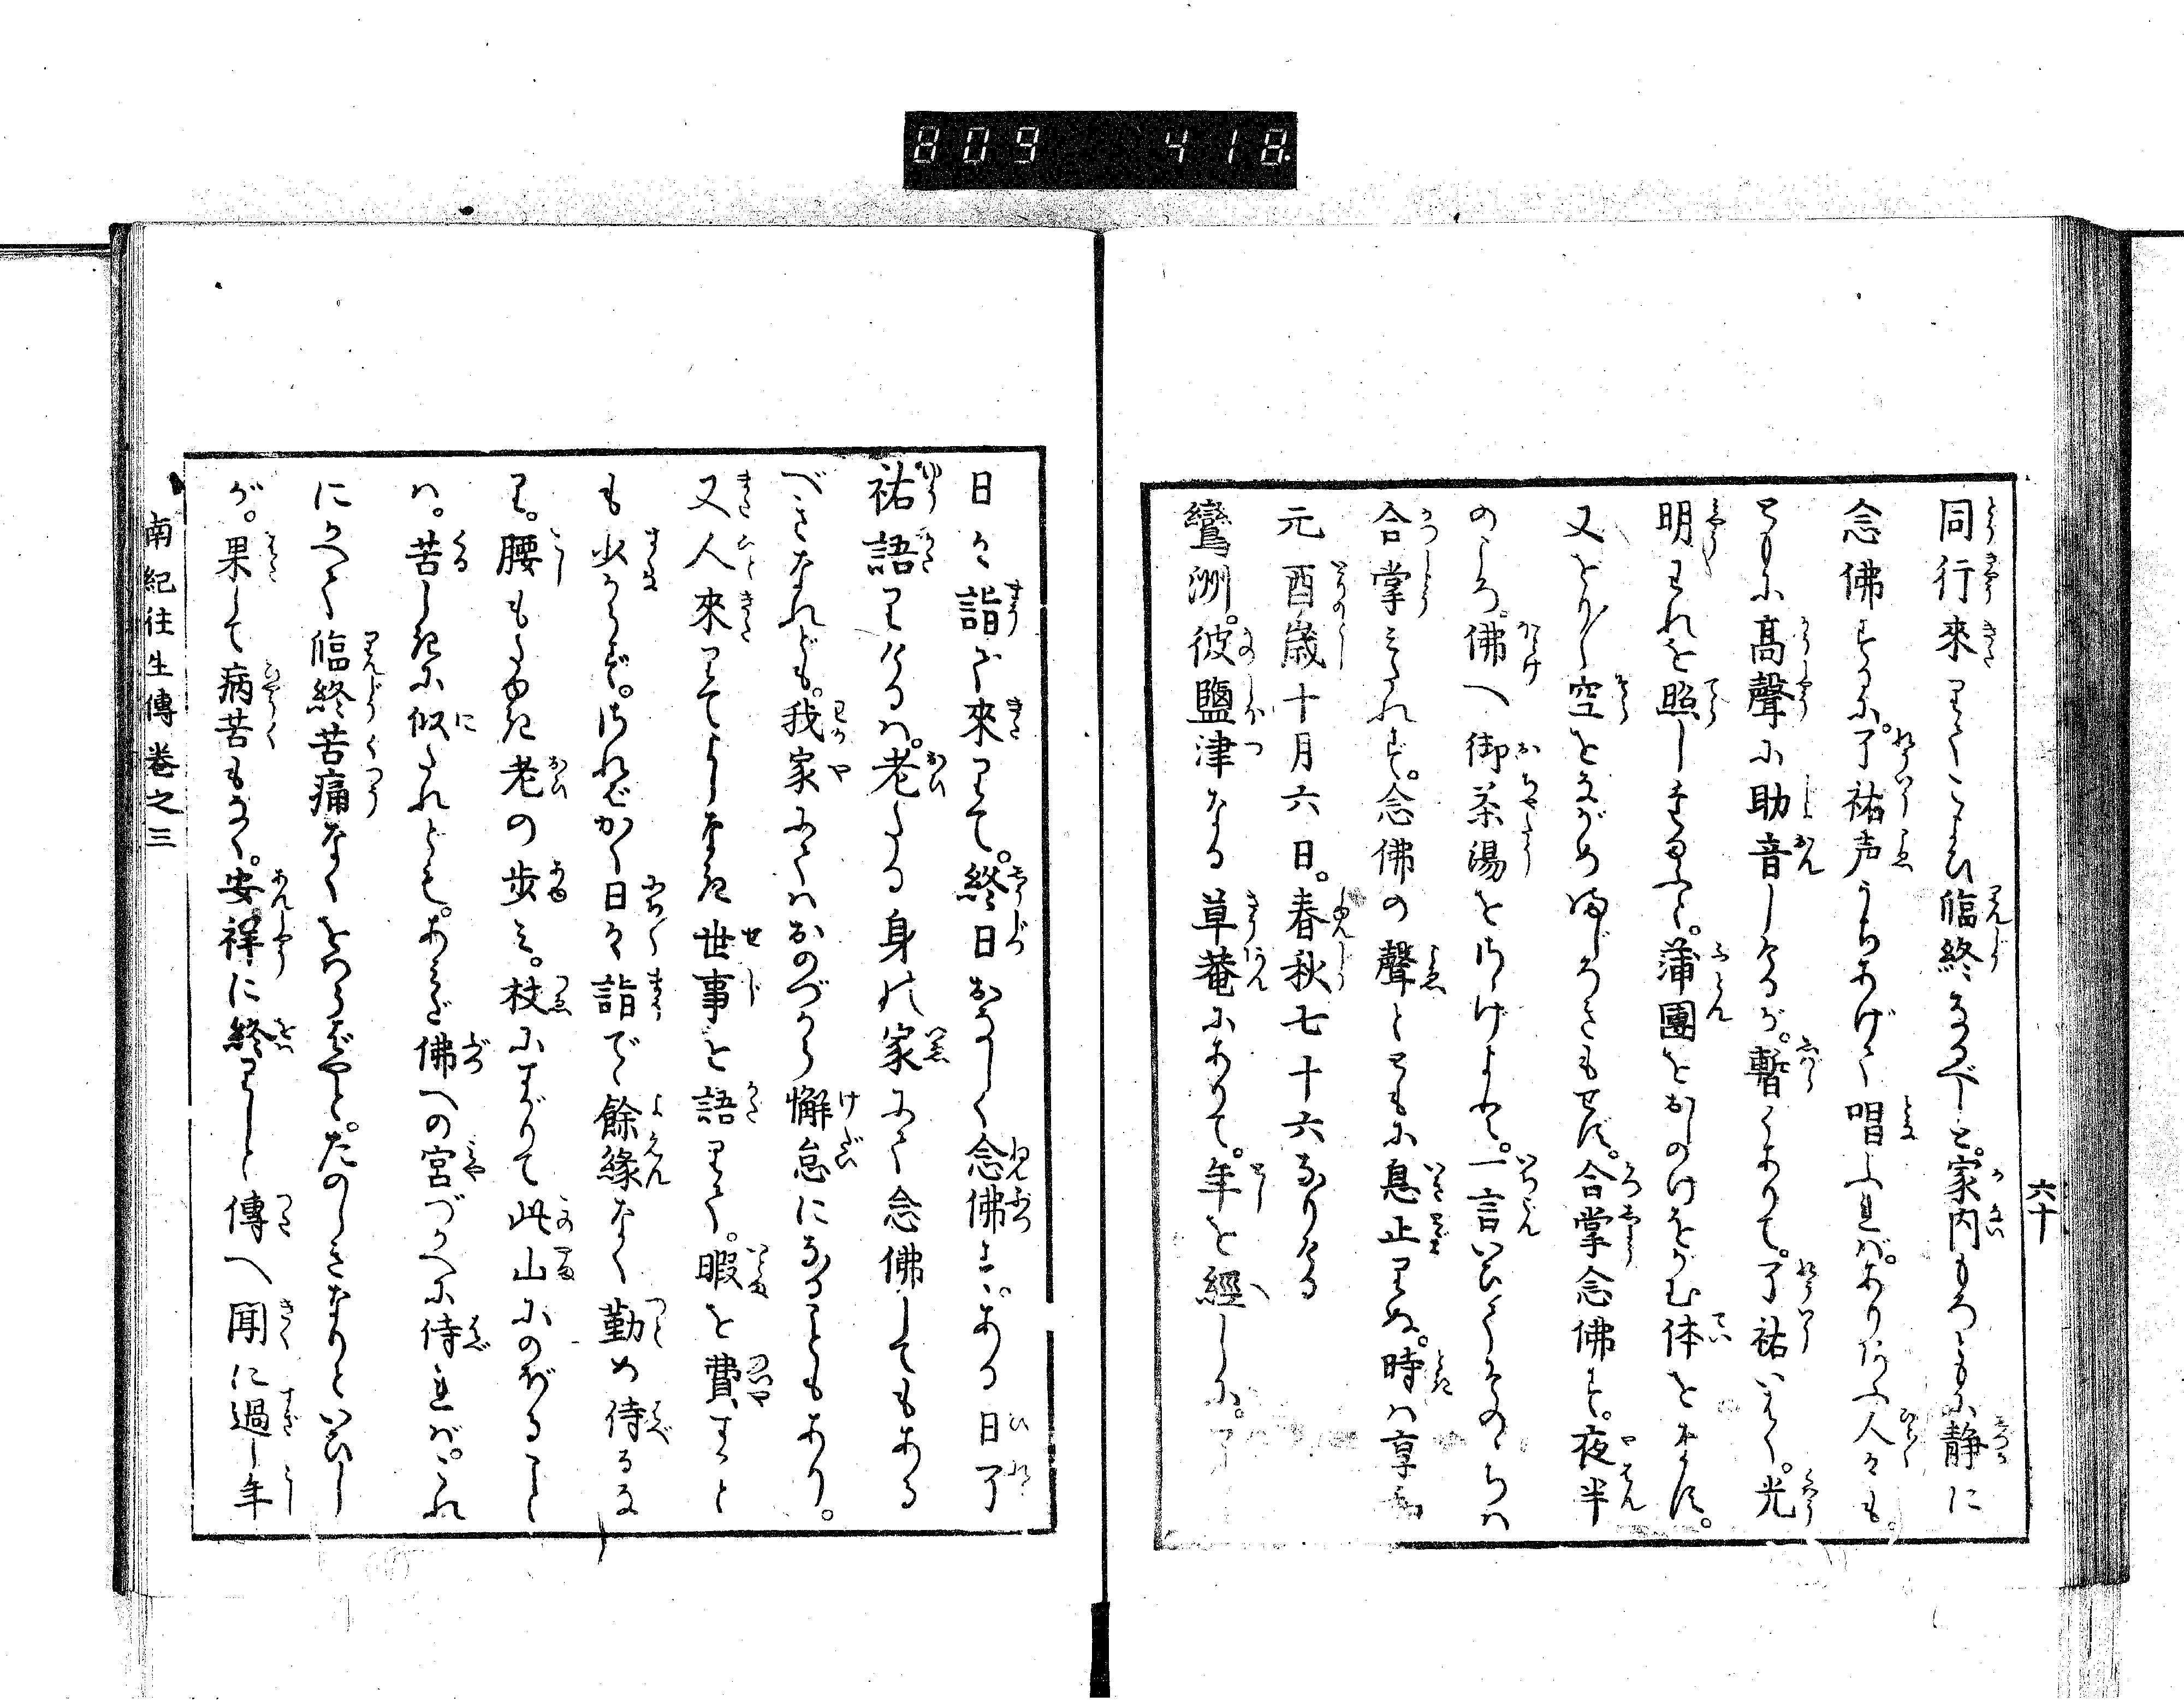 809 418
六十
同行來りてこよひ臨終なるべしと。家内もろともに静に
念佛するに。了祐声うちあげて唱ふれば。ありあふ人々も。
ともに高聲に助音しけるが。暫くありて。了祐いはく。光
明われを照し玉ふと。蒲團をおしのけをがむ体をなす。
又をり〳〵空をながめまじろきもせず。合掌念佛す。夜半
のころ。佛へ御茶湯をさゝげよと。一言いひてそのゝちは
合掌みだれず。念佛の聲とともに息止りぬ。時は享
元酉歳十月六日。春秋七十六なりける
鸞洲。彼鹽津なる草菴にありて。年を經しに。了
日々詣で來りて。終日おなじく念佛す。ある日了
祐語りけるは。老たる身の家にて念佛してもある
べきなれども。我家にてはおのづから懈怠になることもあり。
又人來りてよしなき世事を語りて。暇を費すこと
も少からず。さればかく日々詣で餘緣なく勤め侍るな
り。腰もたゆき老の歩み。杖にすがりて此山にのぼること
は。苦しきに似たれども。あみだ佛への宮づかへに侍れば。これ
にかへて臨終苦痛なくをはらばやと。たのしきなりといひし
が。果して病苦もなく。安祥に終りしと傳へ聞に過し年
南紀往生傳卷之三